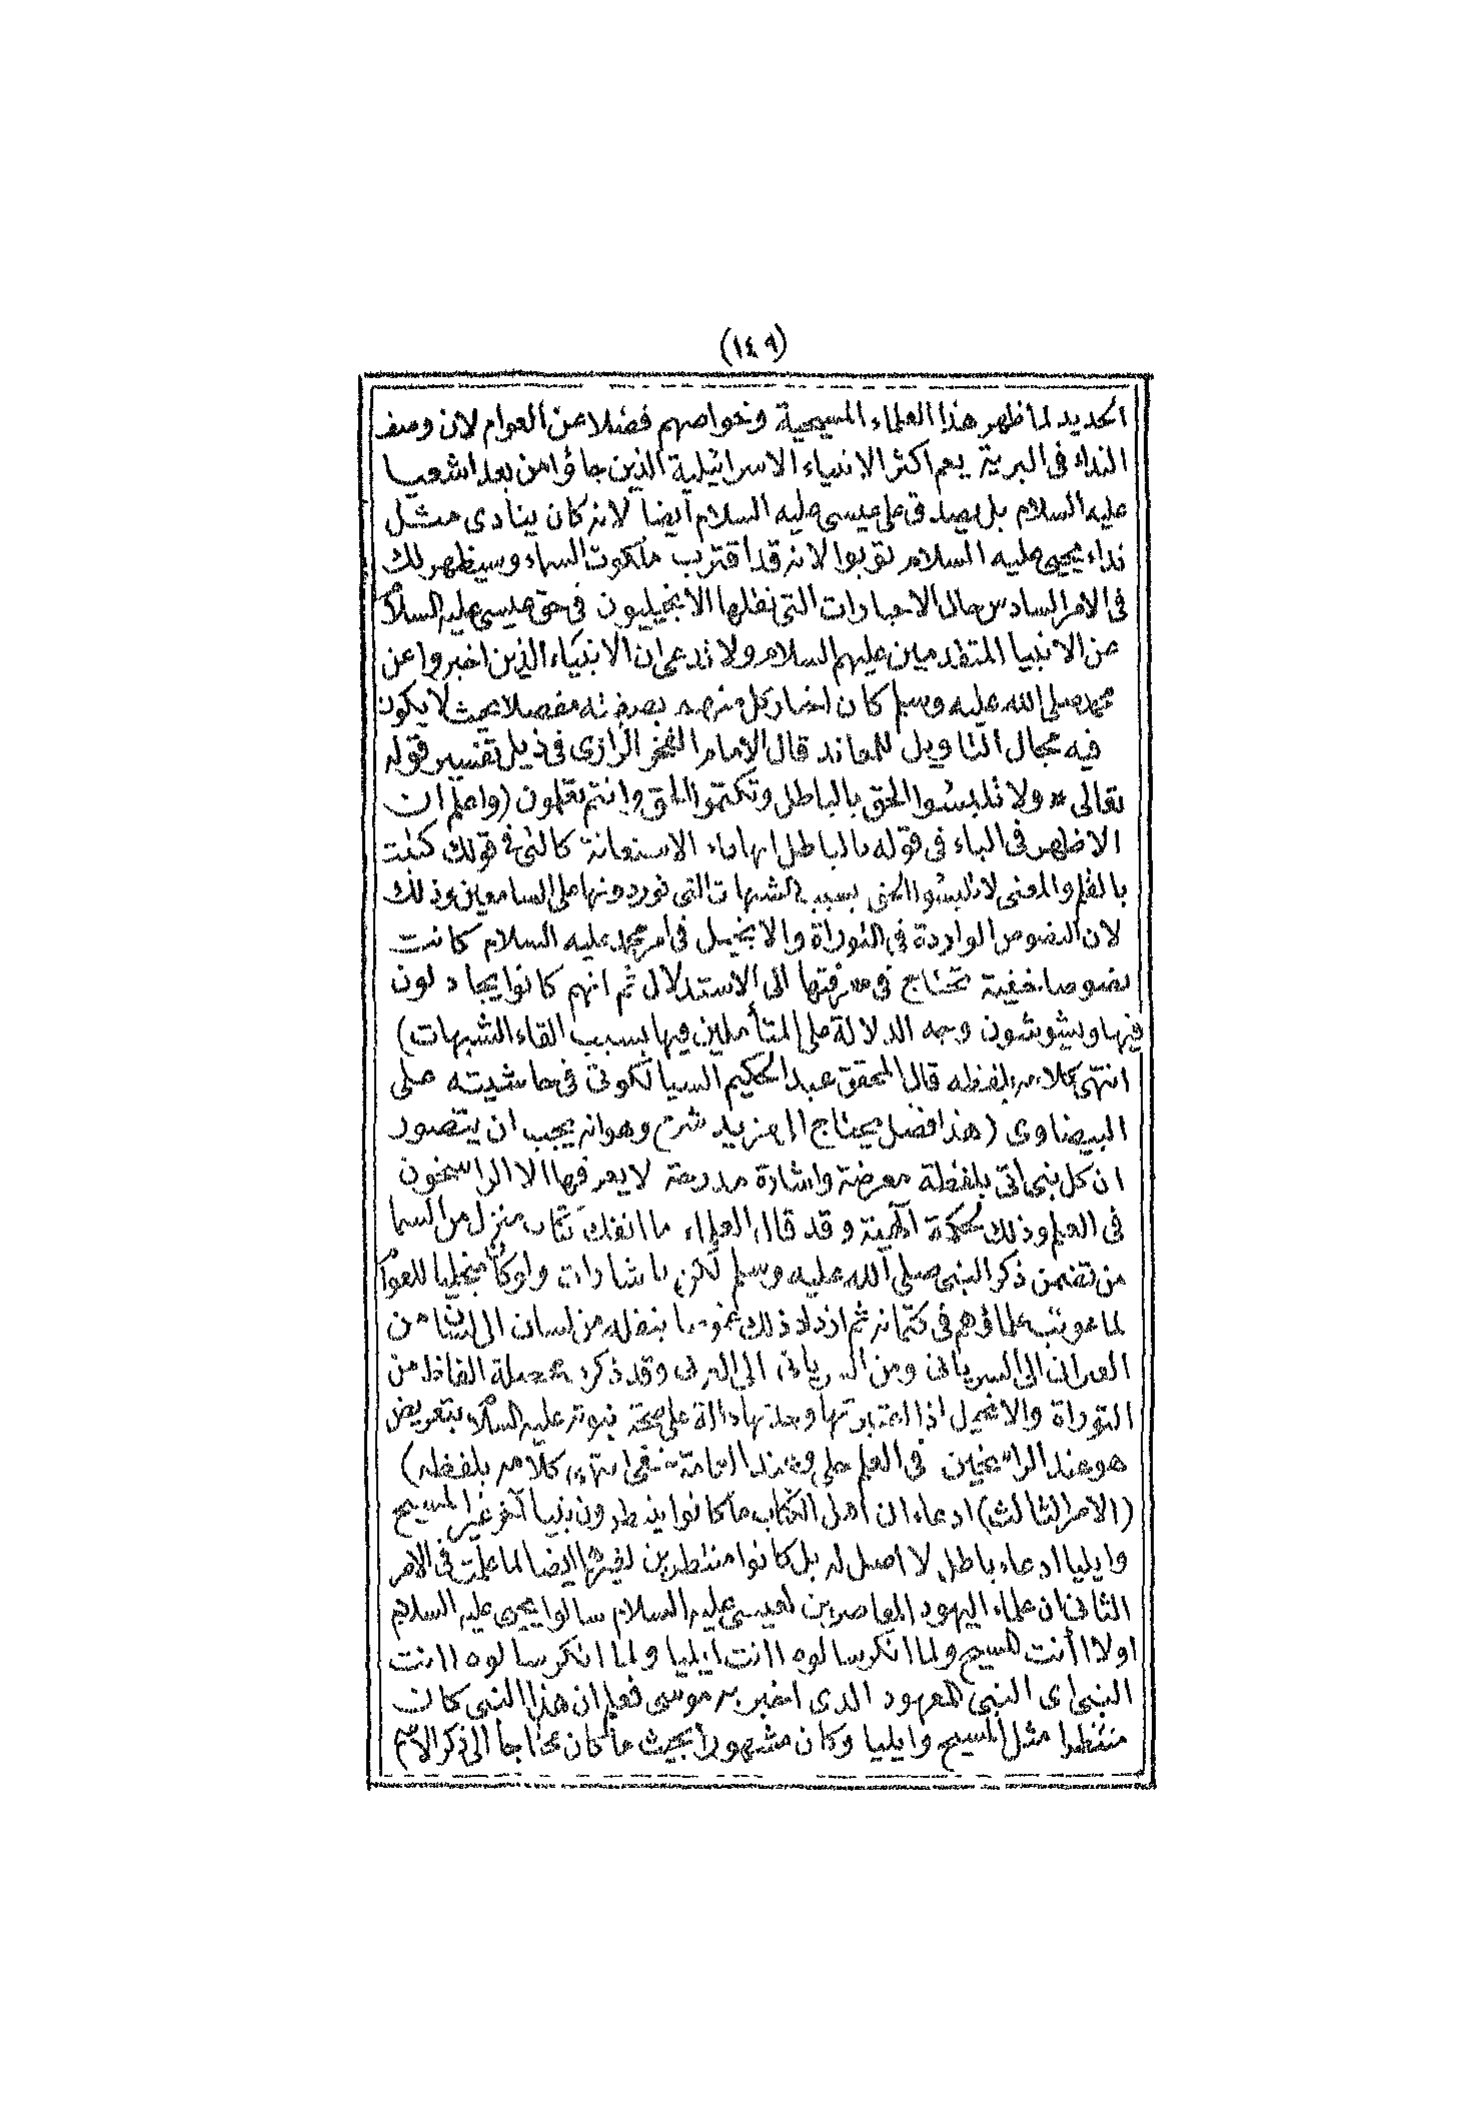 (١٤٩)
الجديد لما ظهر هذا العلماء المسيحية وخواصهم فضلا عن العوام لان وصف
النداء فى البرية يعم اكثر الانبياء الاسرائيلية الذين جاؤا من بعد اشعيا
عليه السلام بل يصدق على عيسى عليه السلام ايضا لانه كان ينادى مثل
نداء يحيى عليه السلام توبوا لانه قد اقترب ملكوت السماء وسيظهر لك
فى الامر السادس حال الاخبارات التى نقلها الانجيليون فى حق عيسى عليه السلام
عن الانبيا المتقدمين عليهم السلام ولا ندعى ان الانبياء الذين اخبروا عن
محمد صلى الله عليه وسلم كان اخبار كل منهم بصفته مفصلا بحيث لا يكون
فيه مجال التاويل للمعاند قال الامام الفخر الرازى فى ذيل تفسير قوله
تعالى * ولا تلبسوا الحق بالباطل وتكتموا الحق وانتم تعلمون (واعلم ان
الاظهر فى الباء فى قوله بالباطل انها باء الاستعانة كالتى فى قولك كتبت
بالقلم والمعنى لا تلبسوا الحق بسبب الشبهات التى توردونها على السامعين وذلك
لان النصوص الواردة فى التوراة والانجيل فى امر محمد عليه السلام كانت
نصوصا خفية تحتاج فى معرفتها الى الاستدلال ثم انهم كانوا يجادلون
فيها ويشوشون وجه الدلالة على المتأملين فيها بسبب القاء الشبهات)
انتهى كلامه بلفظه قال المحقق عبد الحكيم السيالكوتى فى حاشيته على
البيضاوى (هذا فصل يحتاج الى مزيد شرح وهو انه يجب ان يتصور
ان كل نبى اتى بلفظة معرضة واشارة مدرجة لا يعرفها الا الراسخون
فى العلم وذلك لحكمة آلهية وقد قال العلماء ما انفك كتاب منزل من السما
من تضمن ذكر النبى صلى الله عليه وسلم لكن باشارات ولو كان منجليا للعوام
لما عوتب علماؤهم فى كتمانه ثم ازداد ذلك غموضا بنقله من لسان الى لسان من
العبرانى الى السريانى ومن السريانى الى العربى وقد ذكرت محصلة الفاظ من
التوراة والانجيل اذا اعتبرتها وجدتها دالة على صحة نبوته عليه السلام بتعريض
هو عند الراسخين فى العلم جلى وعند العامة خفى انتهى كلامه بلفظه)
(الامر الثالث) ادعاء ان اهل الكتاب ما كانوا ينتظرون نبيا آخر غير المسيح
وايليا ادعاء باطل لا اصل له بل كانوا منتظرين لغيرها ايضا لما علمت فى الامر
الثانى ان علماء اليهود المعاصرين لعيسى عليه السلام سالوا يحيى عليه السلام
اولا أأنت المسيح ولما انكر سالوه اانت ايليا ولما انكر سالوه اانت
النبى اى النبى المعهود الذى اخبر به موسى فعلم ان هذا النبى كان
منتظرا مثل المسيح وايليا وكان مشهورا بحيث ما كان محتاجا الى ذكر الاسم